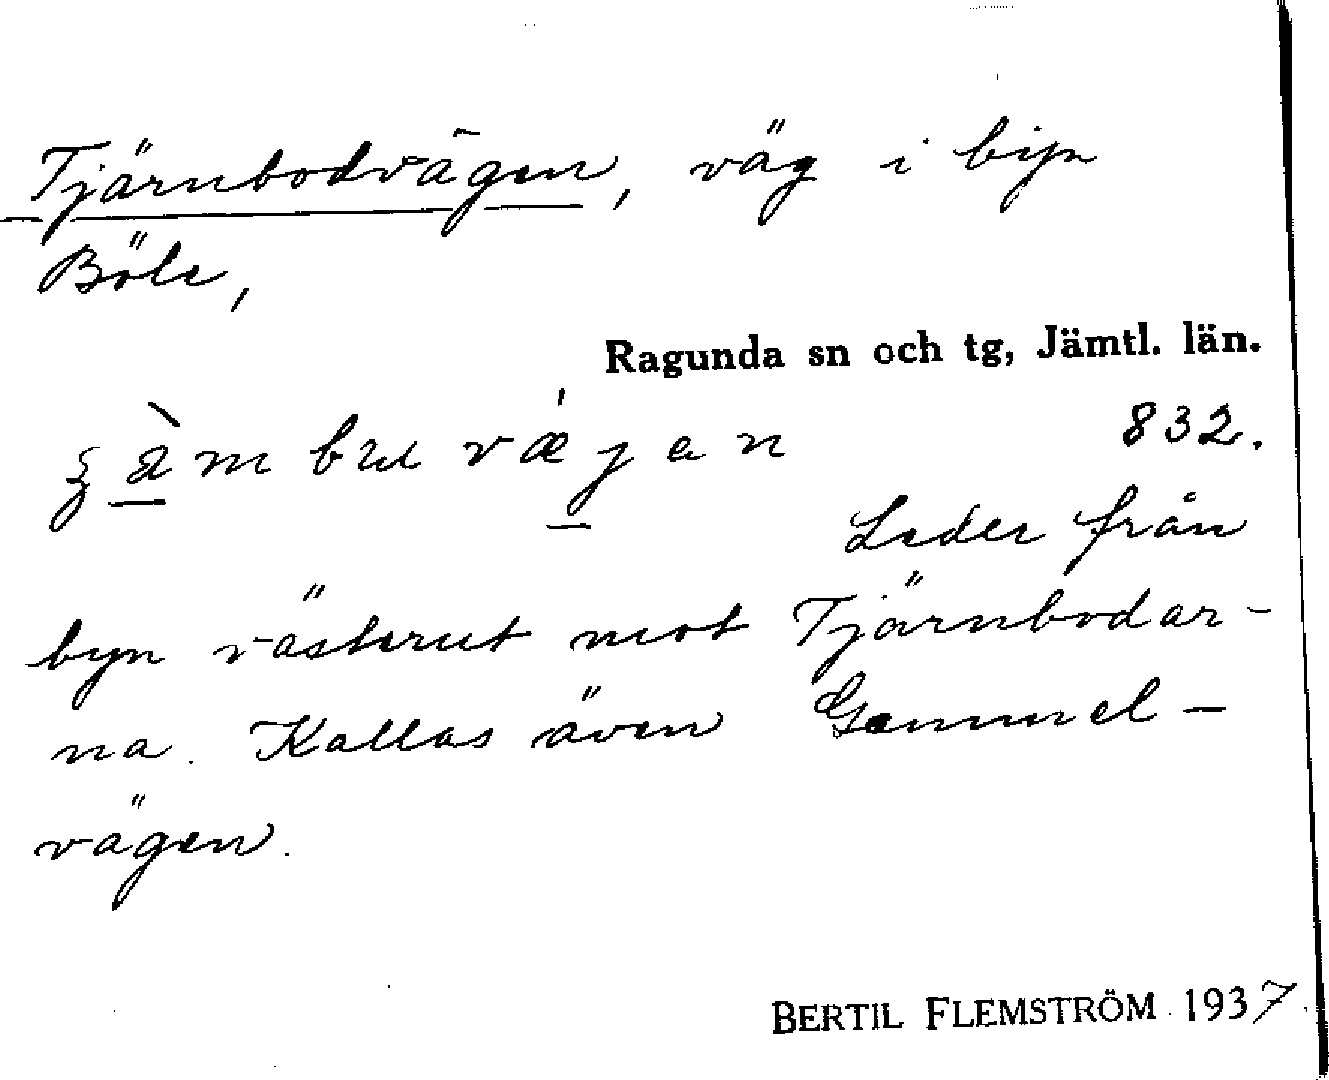 Tjärnbodvägen, väg i byn
Böle,
Ragunda sn och tg, Jämtl. län.
832.
Leder från
byn västerut mot Tjärnbodar-
na. Kallas även Gammel-
vägen.
BERTIL FLEMSTRÖM 1937.